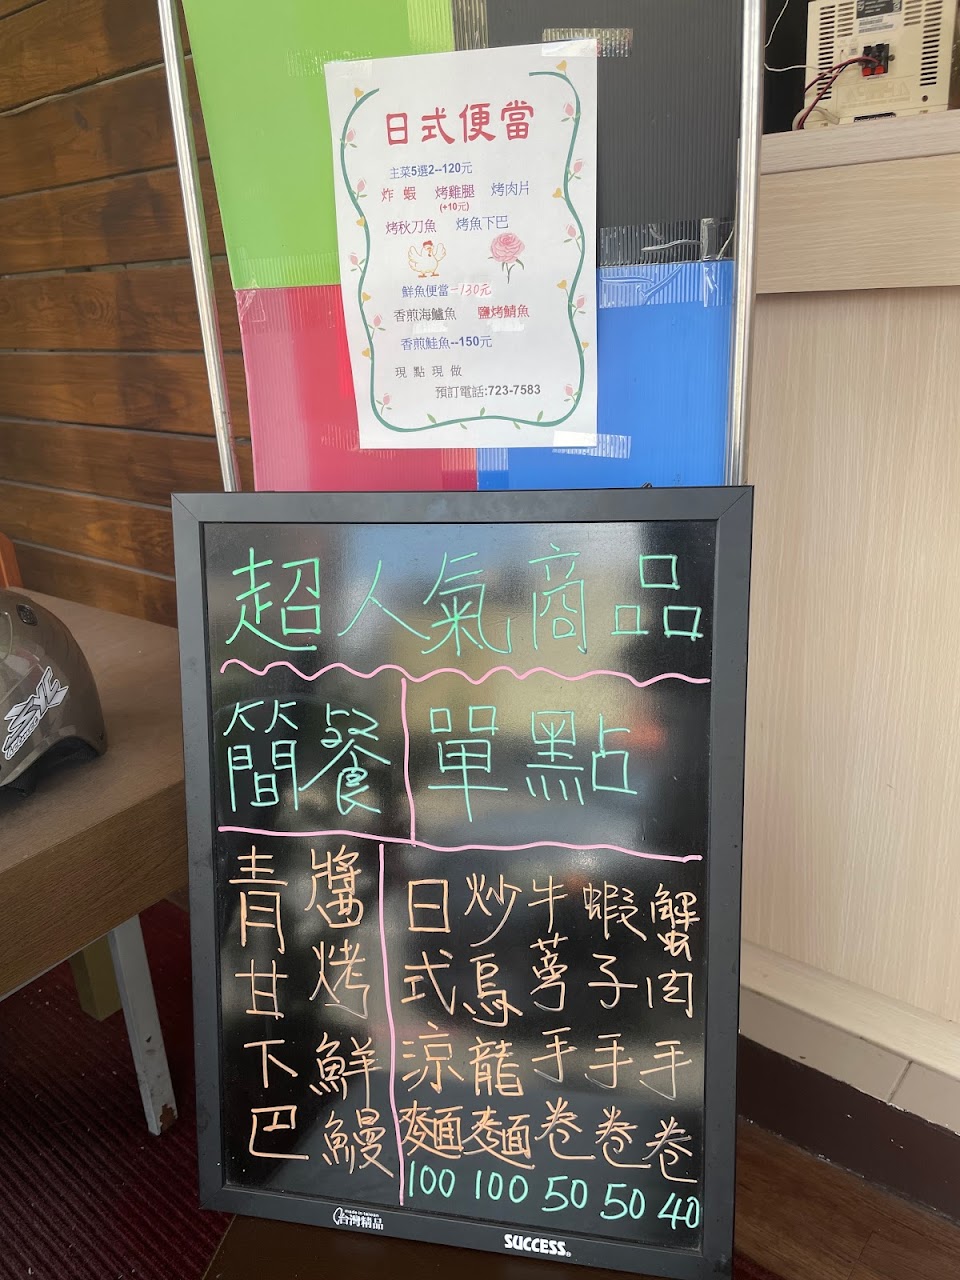 日式便當
主菜5選2--120元
炸蝦 烤雞腿 烤肉片
(+10元)
烤秋刀魚 烤魚下巴
鮮魚便當-130元
香煎海鱸魚 鹽烤鯖魚
香煎鮭魚--150元
現點現做
預訂電話:723-7583
超人氣商品
簡餐
單點
醬烤鮮鰻
青甘下巴
蟹肉手卷 40
蝦子手卷 50
牛蒡手卷 50
炒烏龍麵 100
日式涼麵 100
made in taiwan
台灣精品
SUCCESS